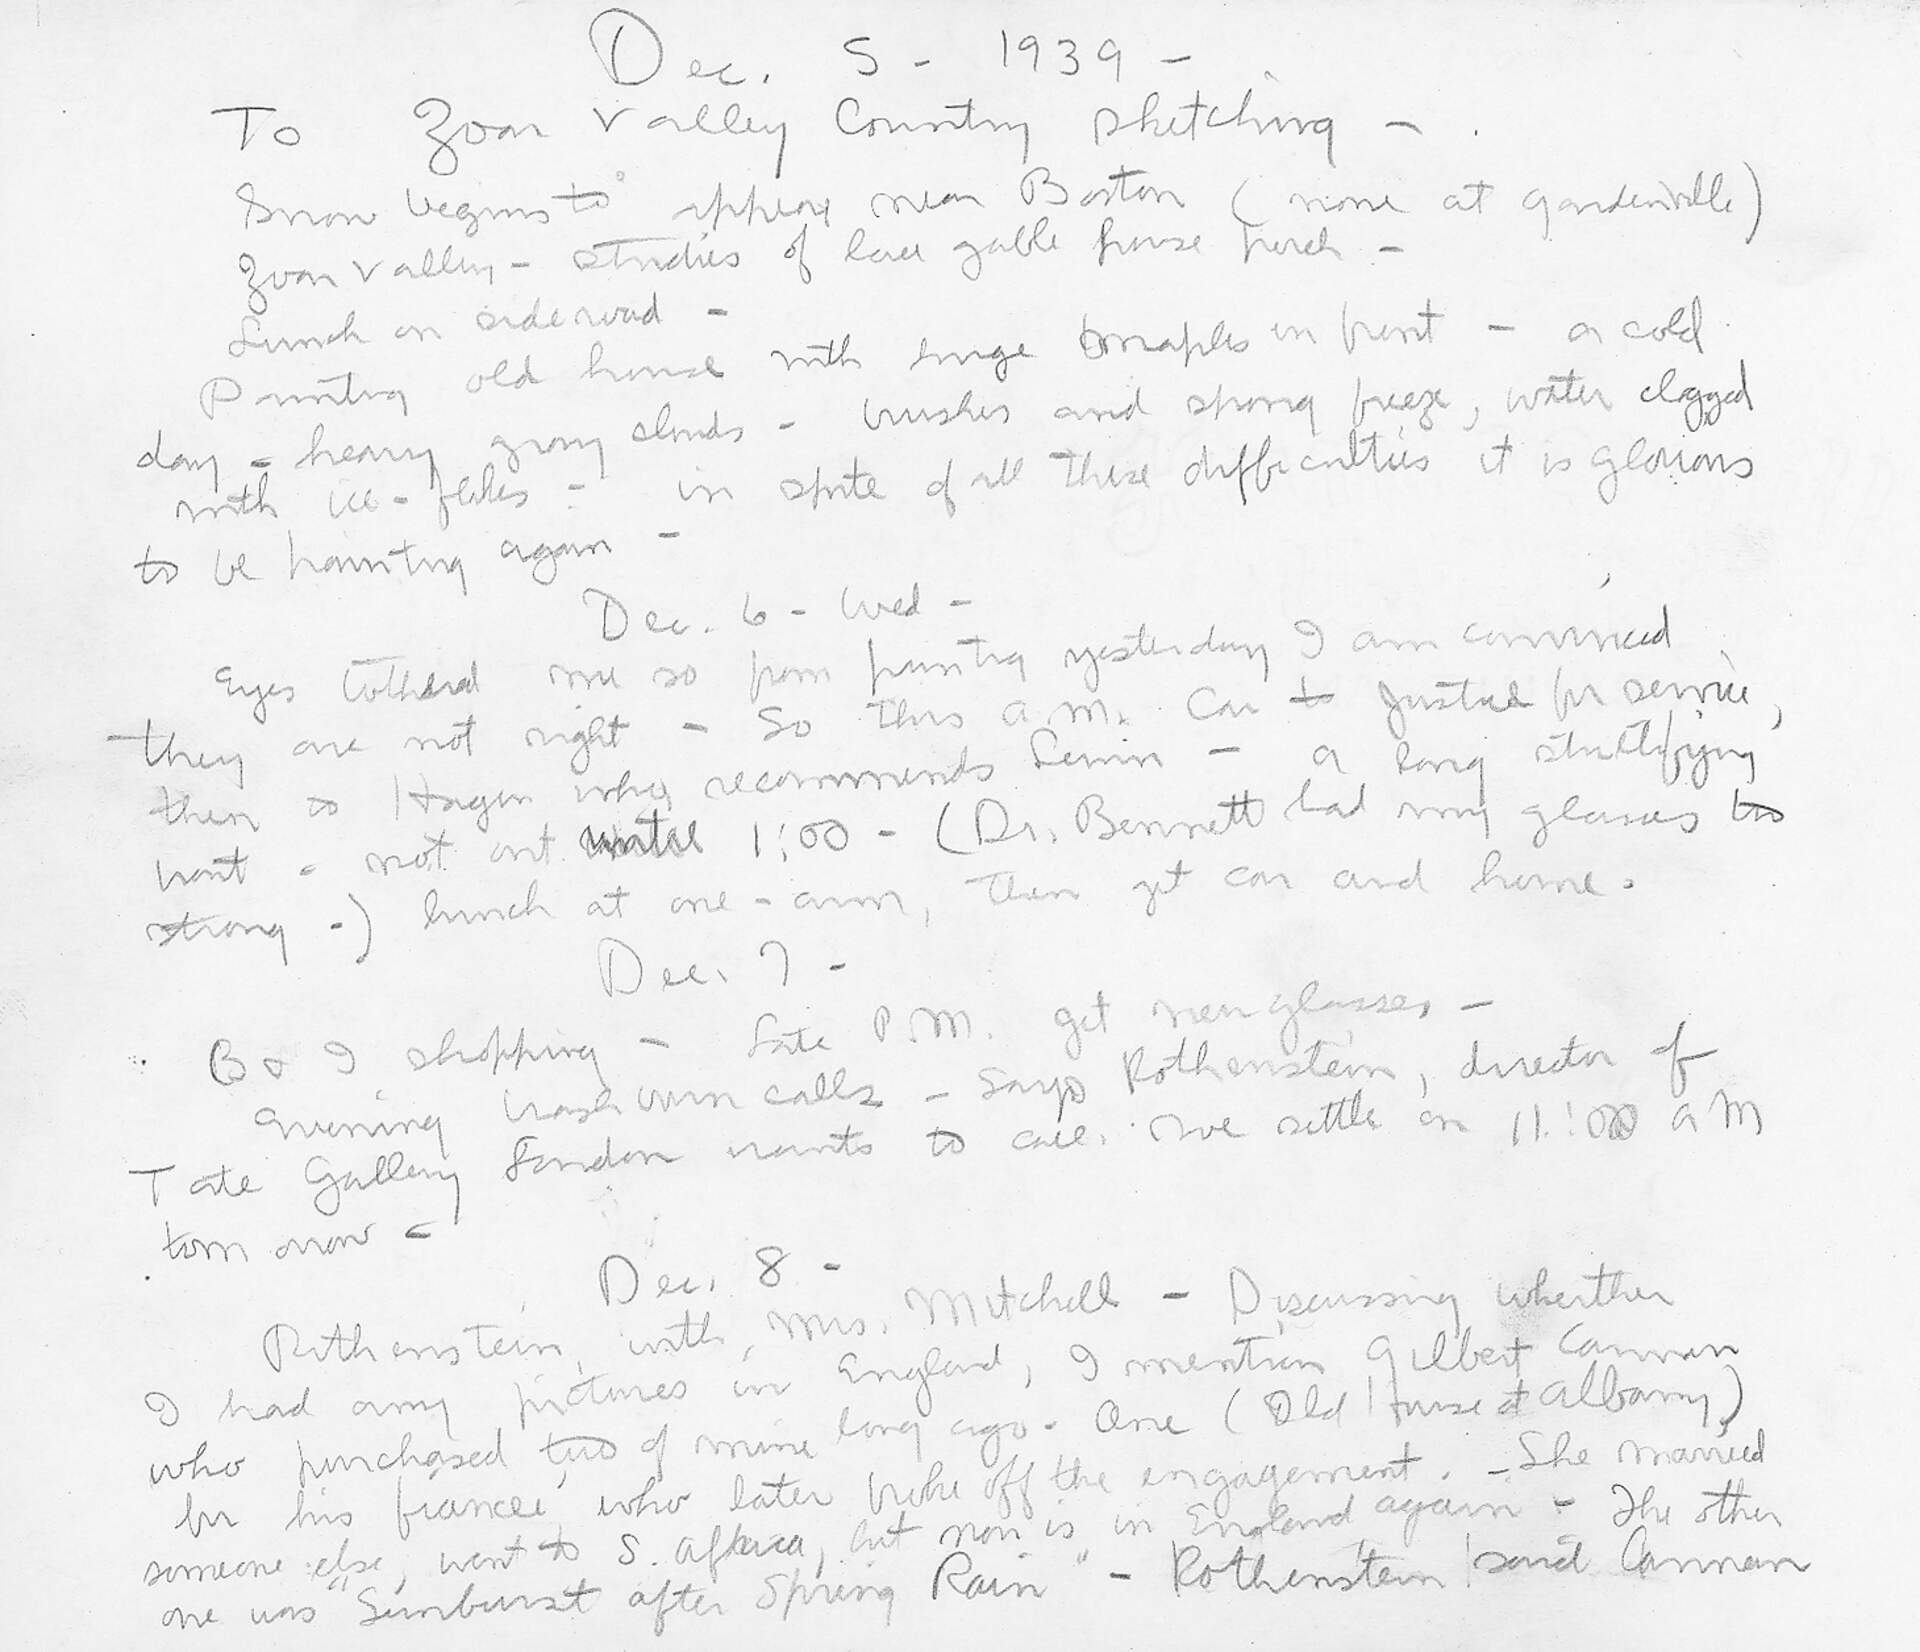 Dec. 5 - 1939 -
To Zoar Valley Country sketching -
Snow begins to appear near Boston (none at Gardenville)
Zoar Valley - studies of low gable house porch -
Lunch on side road -
Painting old house with huge maples in front - a cold
day - heavy gray clouds - brushes and sponge freeze, water clogged
with ice-flakes - in spite of all these difficulties it is glorious
to be painting again -
Dec. 6 - Wed -
Eyes bothered me so from painting yesterday I am convinced
they are not right - So this A.M. Car to for service,
then to Hagen who recommends - a long stultifying
wait - not out until 1:00 - (Dr. Bennett had my glasses too
strong -) lunch at one-arm, then get car and home.
Dec. 7 -
B & I shopping - Late P.M. get new glasses -
Evening Washburn calls - says Rothenstein, director of
Tate Gallery London wants to call. We settle on 11:00 A M
tomorrow -
Dec. 8 -
Rothenstein, with Mrs. Mitchell - Discussing whether
I had any pictures in England, I mention Gilbert Cannan
who purchased two of mine long ago - One (Old House at Albany)
for his fiancee, who later broke off the engagement. - She married
someone else, went to S. Africa, but now is in England again - The other
one was "Sunburst after Spring Rain" - Rothenstein said Cannan